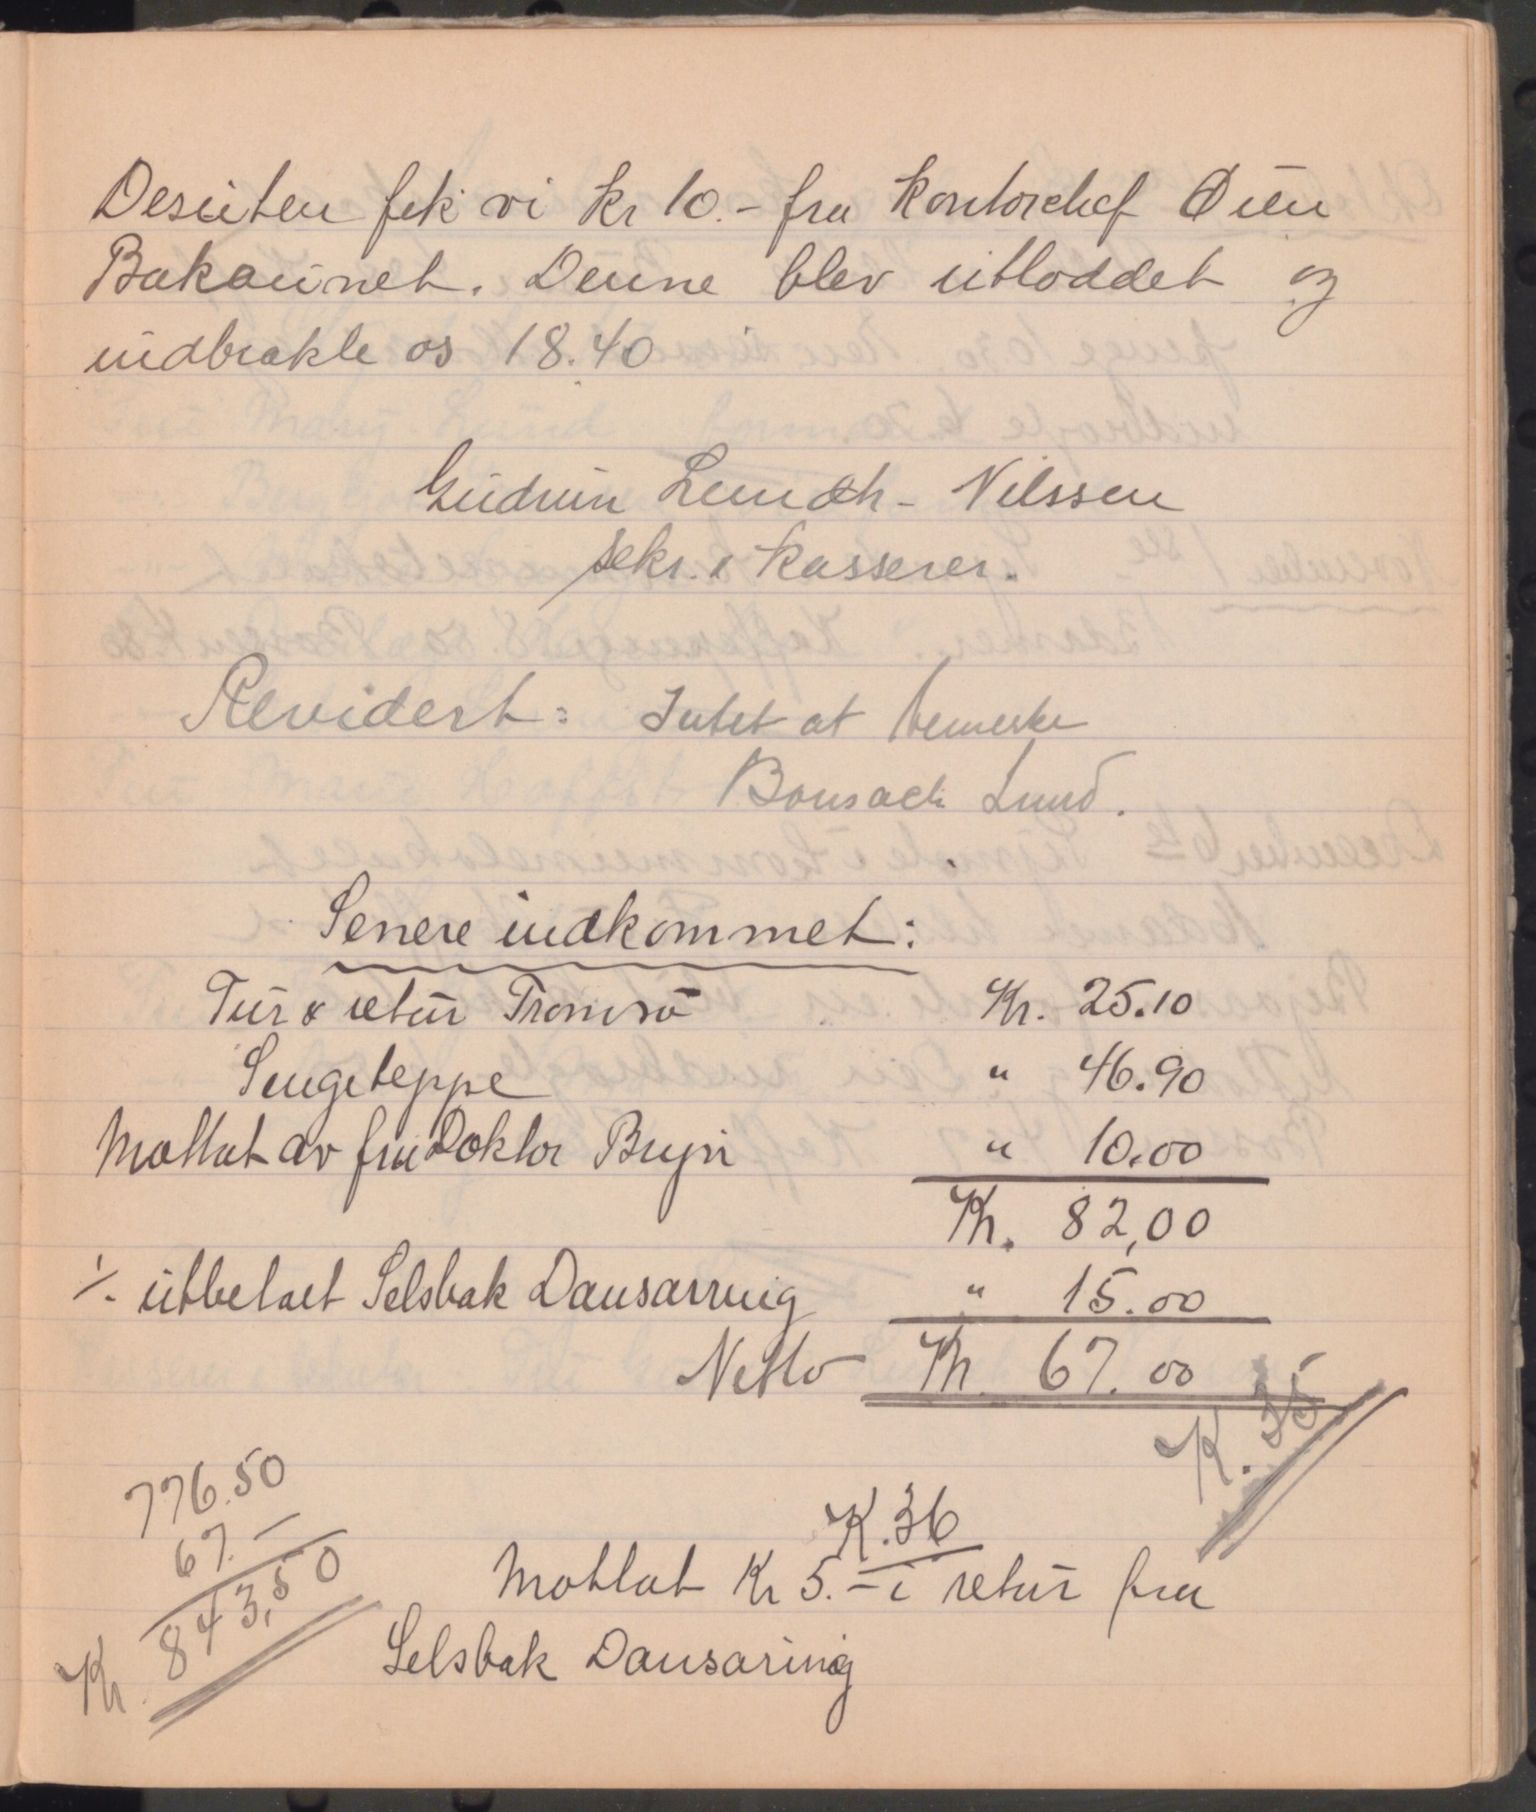 Desuten fek vi kr 10.- fra kontorchef Øien
Bakaunet. Denne blev utloddet og
indbrakte os 18.40
Gudrun Lundh - Nilssen
sekr. & kasserer.
Revidert: Intet at bemerke
Bonsach Lund.
Senere indkommet:
Tur & retur Tromsö Kr. 25.10
Sengeteppe " 46.90
Mottat av fru Doktor Bryn " 10.00
Kr. 82,00
÷ utbetalt Selsbak Dansarring " 15.00
Netto Kr. 67.00
K. 35
776.50
67.-
Kr. 843,50
K.36
Mottat Kr 5.- i retur fra
Selsbak Dansaring